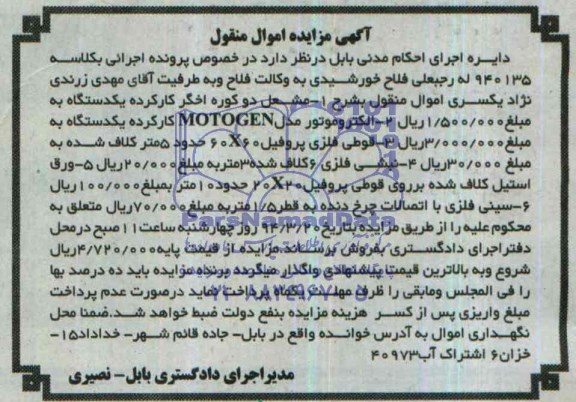 آگهی مزایده اموال منقول
دایره اجرای احکام مدنی بابل درنظر دارد در خصوص پرونده اجرائی بکلاسه
۹۴۰۱۳۵ له رجبعلی فلاح خورشیدی به وکالت فلاح وبه طرفیت آقای مهدی زرندی
نژاد یکسری اموال منقول بشرح ۱-مشعل دو کوره اخگر کارکرده یکدستگاه به
مبلغ۱/۵۰۰/۰۰۰ریال ۲-الکتروموتور مدلMOTOGEN کارکرده یکدستگاه به
مبلغ۳/۰۰۰/۰۰۰ریال ۳-قوطی فلزی پروفیل۶۰X۶۰ حدود ۵متر کلاف شده به
مبلغ ۳۰/۰۰۰ریال ۴-نبشی فلزی ۶کلاف شده۳متربه مبلغ۲۰/۰۰۰ریال ۵-ورق
استیل کلاف شده برروی قوطی پروفیل۲۰X۲۰ حدود۱۰متر بمبلغ۱۰۰/۰۰۰ریال
۶-سینی فلزی با اتصالات چرخ دنده به قطر۱/۵متربه مبلغ۷۰/۰۰۰ریال متعلق به
محکوم علیه را از طریق مزایده بتاریخ۹۴/۳/۲۰ روز چهارشنبه ساعت۱۱صبح درمحل
دفتراجرای دادگستری بفروش برساند مزایده از قیمت پایه۴/۷۲۰/۰۰۰ریال
شروع وبه بالاترین قیمت پیشنهادی واگذار میگردد برنده مزایده باید ده درصد بها
را فی المجلس ومابقی را ظرف مهلت یکماه پرداخت نماید درصورت عدم پرداخت
مبلغ واریزی پس از کسر هزینه مزایده بنفع دولت ضبط خواهد شد.ضمنا محل
نگهداری اموال به آدرس خوانده واقع در بابل- جاده قائم شهر- خداداد۱۵-
خزان۶ اشتراک آب۴۰۹۷۳
مدیراجرای دادگستری بابل- نصیری
ParsNamadData